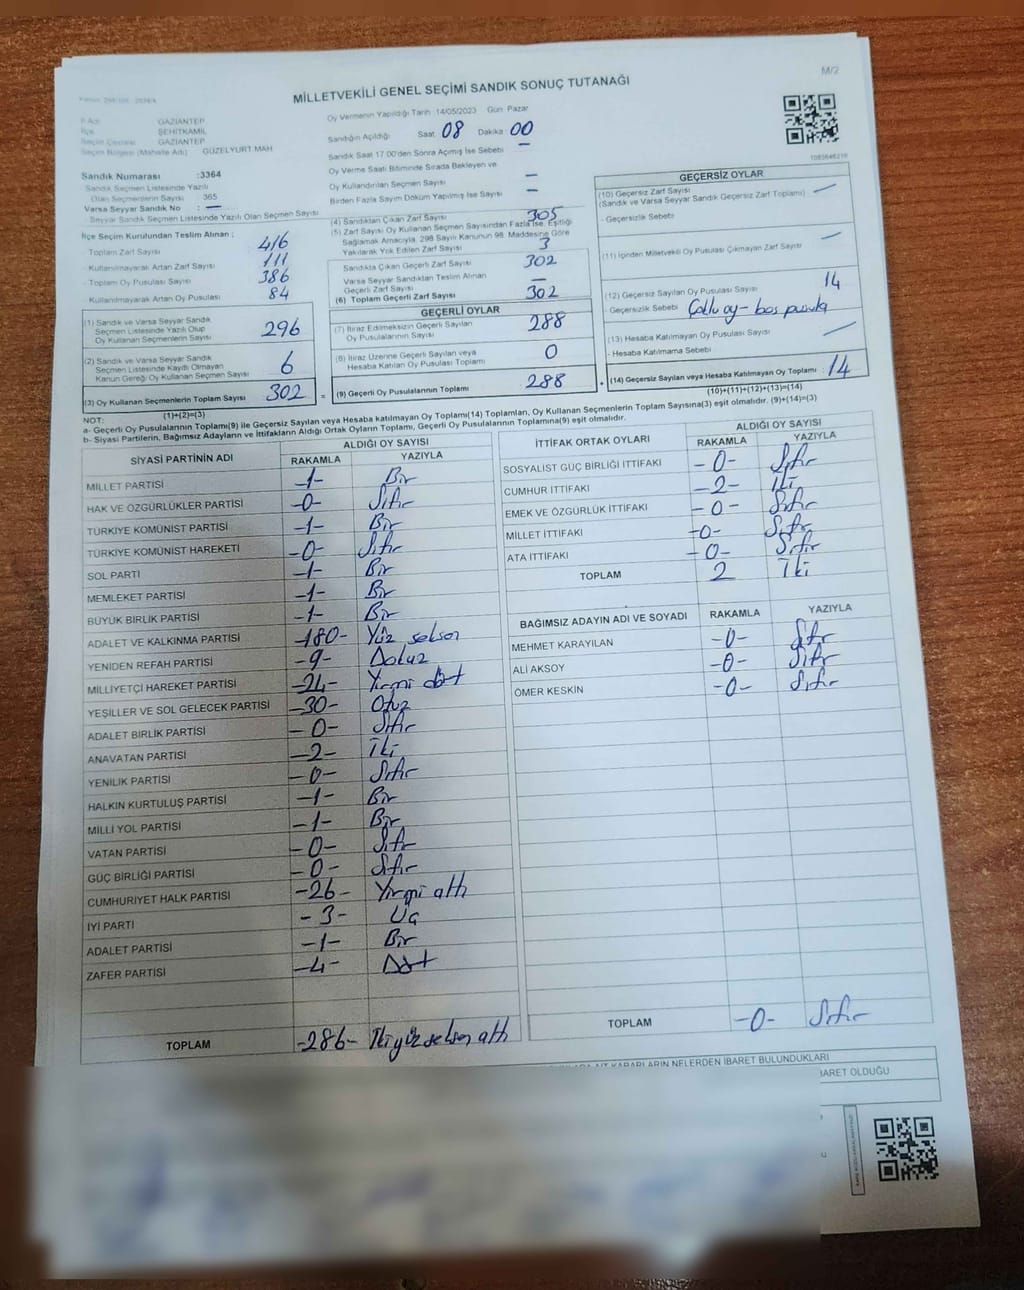 MİLLETVEKİLİ GENEL SEÇİMİ SANDIK SONUÇ TUTANAĞI
M/2
İl Adı GAZİANTEP
İlçe ŞEHİTKAMİL
Seçim Çevresi GAZİANTEP
Seçim Bölgesi (Mahalle Adı) GÜZELYURT MAH
Sandık Numarası :3364
Sandık Seçmen Listesinde Yazılı
Olan Seçmenlerin Sayısı 365
Varsa Seyyar Sandık No : —
Seyyar Sandık Seçmen Listesinde Yazılı Olan Seçmen Sayısı
İlçe Seçim Kurulundan Teslim Alınan ;
- Toplam Zarf Sayısı 416
- Kullanılmayarak Artan Zarf Sayısı 111
- Toplam Oy Pusulası Sayısı 386
- Kullanılmayarak Artan Oy Pusulası 84
(1) Sandık ve Varsa Seyyar Sandık
Seçmen Listesinde Yazılı Olup
Oy Kullanan Seçmenlerin Sayısı 296
(2) Sandık ve Varsa Seyyar Sandık
Seçmen Listesinde Kaydı Olmayan
Kanun Gereği Oy Kullanan Seçmen Sayısı 6
(3) Oy Kullanan Seçmenlerin Toplam Sayısı 302 =
(1)+(2)=(3)
Oy Vermenin Yapıldığı Tarih :14/05/2023 Gün: Pazar
Sandığın Açıldığı Saat 08 Dakika 00
Sandık Saat 17.00'den Sonra Açılmış İse Sebebi —
Oy Verme Saati Bitiminde Sırada Bekleyen ve
Oy Kullandırılan Seçmen Sayısı —
Birden Fazla Sayım Döküm Yapılmış İse Sayısı —
(4) Sandıktan Çıkan Zarf Sayısı 305
(5) Zarf Sayısı Oy Kullanan Seçmen Sayısından Fazla İse, Eşitliği
Sağlamak Amacıyla, 298 Sayılı Kanunun 98. Maddesine Göre
Yakılarak Yok Edilen Zarf Sayısı 3
Sandıkta Çıkan Geçerli Zarf Sayısı 302
Varsa Seyyar Sandıktan Teslim Alınan
Geçerli Zarf Sayısı —
(6) Toplam Geçerli Zarf Sayısı 302
GEÇERLİ OYLAR
(7) İtiraz Edilmeksizin Geçerli Sayılan
Oy Pusulalarının Sayısı 288
(8) İtiraz Üzerine Geçerli Sayılan veya
Hesaba Katılan Oy Pusulası Toplamı 0
(9) Geçerli Oy Pusulalarının Toplamı 288 +
GEÇERSİZ OYLAR
(10) Geçersiz Zarf Sayısı —
(Sandık ve Varsa Seyyar Sandık Geçersiz Zarf Toplamı)
- Geçersizlik Sebebi
(11) İçinden Milletvekili Oy Pusulası Çıkmayan Zarf Sayısı —
(12) Geçersiz Sayılan Oy Pusulası Sayısı 14
- Geçersizlik Sebebi Çoklu oy- boş pusula
(13) Hesaba Katılmayan Oy Pusulası Sayısı —
- Hesaba Katılmama Sebebi
(14) Geçersiz Sayılan veya Hesaba Katılmayan Oy Toplamı : 14
(10)+(11)+(12)+(13)=(14)
NOT:
a- Geçerli Oy Pusulalarının Toplamı(9) ile Geçersiz Sayılan veya Hesaba katılmayan Oy Toplamı(14) Toplamları, Oy Kullanan Seçmenlerin Toplam Sayısına(3) eşit olmalıdır. (9)+(14)=(3)
b- Siyasi Partilerin, Bağımsız Adayların ve İttifakların Aldığı Ortak Oyların Toplamı, Geçerli Oy Pusulalarının Toplamına(9) eşit olmalıdır.
SİYASİ PARTİNİN ADI ALDIĞI OY SAYISI
RAKAMLA YAZIYLA
MİLLET PARTİSİ -1- Bir
HAK VE ÖZGÜRLÜKLER PARTİSİ -0- Sıfır
TÜRKİYE KOMÜNİST PARTİSİ -1- Bir
TÜRKİYE KOMÜNİST HAREKETİ -0- Sıfır
SOL PARTİ -1- Bir
MEMLEKET PARTİSİ -1- Bir
BÜYÜK BİRLİK PARTİSİ -1- Bir
ADALET VE KALKINMA PARTİSİ -180- Yüz seksen
YENİDEN REFAH PARTİSİ -9- Dokuz
MİLLİYETÇİ HAREKET PARTİSİ -24- Yirmi dört
YEŞİLLER VE SOL GELECEK PARTİSİ -30- Otuz
ADALET BİRLİK PARTİSİ -0- Sıfır
ANAVATAN PARTİSİ -2- İki
YENİLİK PARTİSİ -0- Sıfır
HALKIN KURTULUŞ PARTİSİ -1- Bir
MİLLİ YOL PARTİSİ -1- Bir
VATAN PARTİSİ -0- Sıfır
GÜÇ BİRLİĞİ PARTİSİ -0- Sıfır
CUMHURİYET HALK PARTİSİ -26- Yirmi altı
İYİ PARTİ -3- Üç
ADALET PARTİSİ -1- Bir
ZAFER PARTİSİ -4- Dört
TOPLAM -286- İkiyüz seksen altı
İTTİFAK ORTAK OYLARI ALDIĞI OY SAYISI
RAKAMLA YAZIYLA
SOSYALİST GÜÇ BİRLİĞİ İTTİFAKI -0- Sıfır
CUMHUR İTTİFAKI -2- İki
EMEK VE ÖZGÜRLÜK İTTİFAKI -0- Sıfır
MİLLET İTTİFAKI -0- Sıfır
ATA İTTİFAKI -0- Sıfır
TOPLAM 2 İki
BAĞIMSIZ ADAYIN ADI VE SOYADI RAKAMLA YAZIYLA
MEHMET KARAYILAN -0- Sıfır
ALİ AKSOY -0- Sıfır
ÖMER KESKİN -0- Sıfır
TOPLAM -0- Sıfır
KARARLARIN NELERDEN İBARET BULUNDUKLARI
İBARET OLDUĞU